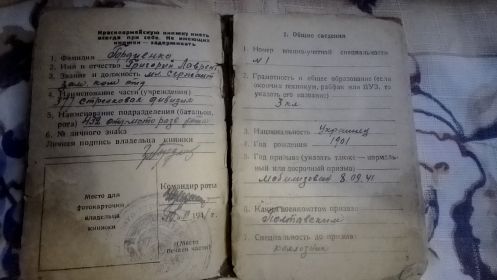 Красноармейскую книжку иметь
всегда при себе. Не имеющих
книжек — задерживать.
1. Фамилия Гордиенко
2. Имя и отчество Григорий Лаврент
3. Звание и должность мл. сержант
зам. ком. отд
4. Наименование части (учреждения)
стрелковая дивизия
5. Наименование подразделения (батальон,
рота)
6. № личного знака
Личная подпись владельца книжки
Место для
фотокарточки
владельца
книжки
Командир роты
(Место
печати части)
I. Общие сведения
1. Номер военно-учетной специальности
№ 1
2. Грамотность и общее образование (если
окончил техникум, рабфак или ВУЗ, то
указать его название)
3 кл
3. Национальность Украинец
4. Год рождения 1901
5. Год призыва (указать также — нормаль-
ный или досрочный призыв)
мобилизован 8.09.41
6. Каким военкоматом призван
Полтавским
7. Специальность до призыва
колхозник